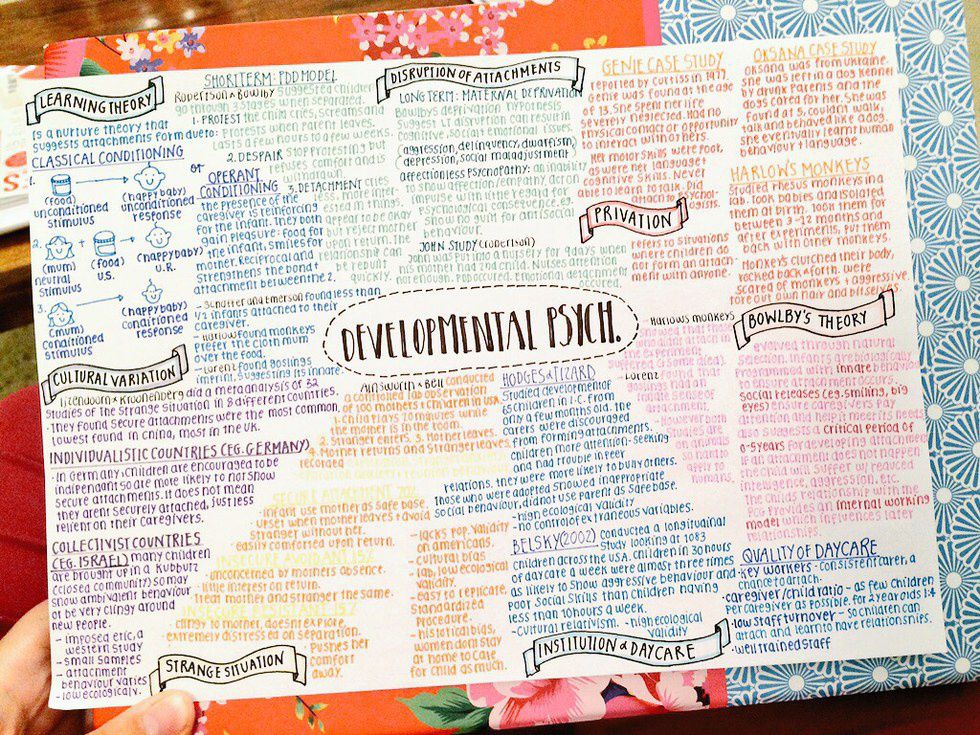 LEARNING THEORY
is a nurture theory that
suggests attachments form due to:
CLASSICAL CONDITIONING
1.
(food)
unconditioned
stimulus
(happy baby)
unconditioned
response
2.
+
(mum)
neutral
stimulus
(food)
U.S.
(happy baby)
U.R.
3.
(mum)
conditioned
stimulus
(happy baby)
conditioned
response
or
OPERANT
CONDITIONING
the presence of the
caregiver is reinforcing
for the infant. They both
gain pleasure: food for
the infant, smiles for
mother. Reciprocal and
strengthens the bond +
attachment between the 2.
- Schaffer and Emerson found less than
1/2 infants attached to their
caregiver.
- Harlow found monkeys
prefer the cloth mum
over the food.
- Lorenz found goslings
imprint, suggesting its innate.
SHORT TERM: PDD MODEL
Robertson & Bowlby suggested children
go through 3 stages when separated.
1. PROTEST the child cries, screams and
protests when parent leaves.
Lasts a few hours to a few weeks.
2. DESPAIR stop protesting but
refuses comfort and is
withdrawn.
3. DETACHMENT cries
less, more inter-
ested in things.
appear to be okay
but reject mother
upon return. The
relationship can
be rebuilt
quickly.
DISRUPTION OF ATTACHMENTS
LONG TERM: MATERNAL DEPRIVATION
Bowlby's deprivation hypothesis
suggest LT disruption can result in
cognitive, social + emotional issues.
aggression, delinquency, dwarfism,
(depression, social maladjustment)
affectionless psychopathy: an inability
to show affection/empathy. Act on
impulse with little regard for
psychological consequence, eg.
show no guilt for antisocial
behaviour.
JOHN STUDY (Robertson)
John was put into a nursery for 9 days when
his mother had a child. Nurses attention
not enough. PDD occured. Emotional detachment
occured.
GENIE CASE STUDY
reported by Curtiss in 1977.
Genie was found at the age
of 13. She spent her life
severely neglected. Had no
physical contact or opportunity
to interact with others.
Her motor skills were poor,
as were her language +
cognitive skills. Never
able to learn to talk. Did
attach to psychol-
ogists.
PRIVATION
refers to situations
where children do
not form an attach-
ment with anyone.
OKSANA CASE STUDY
Oksana was from Ukraine.
she was left in a dog kennel
by drunk parents and the
dogs cared for her. She was
found at 5, couldn't walk,
talk and behaved like a dog.
she eventually learnt human
behaviour + language.
HARLOW'S MONKEYS
Studied rhesus monkeys in a
lab. Took babies and isolated
them at birth. Took them for
between 3-12 months and
after experiments, put them
back with other monkeys.
Monkeys clutched their body,
rocked back + forth. were
scared of monkeys + aggressive.
tore out own hair and bit selves.
DEVELOPMENTAL PSYCH.
CULTURAL VARIATION
Ijzendoorn + Kroonenberg did a meta analysis of 32
studies of the strange situation in 8 different countries.
- They found secure attachments were the most common,
lowest found in China, most in the UK.
INDIVIDUALISTIC COUNTRIES (EG. GERMANY)
- In Germany, children are encouraged to be
indipendant so are more likely to not show
secure attachments. It does not mean
they arent securely attached, just less
relient on their caregivers.
COLLECTIVIST COUNTRIES
(EG. ISRAEL) many children
are brought up in a Kubbutz
(closed community) so may
show ambivalent behaviour
or be very clingy around
new people.
- imposed etic, a
western study
- small samples
- attachment
behaviour varies
- low ecological v.
Ainsworth + Bell conducted
a controlled lab observation
of 100 mothers + children in USA.
1. child plays 10 minutes while
mother is in the room.
2. Stranger enters. 3. Mother leaves.
4. Mother returns and stranger leaves.
recorded
SECURE ATTACHMENT 70%
infant use mother as safe base.
- upset when mother leaves + avoid
stranger without her.
easily comforted upon return.
INSECURE AVOIDANT 15%
- unconcerned by mothers absence.
- little interest on return.
treat mother and stranger the same.
INSECURE RESISTANT 15%
- clingy to mother, doesnt explore.
- extremely distressed on separation.
- Pushes her
comfort
away.
- lacks pop. validity
on americans.
- cultural bias
- lab, low ecological
validity.
- easy to replicate,
standardized
procedure.
- historical bias,
women dont stay
at home to care
for child as much.
STRANGE SITUATION
HODGES + TIZARD
Studied development of
65 children in I.C. from
only a few months old. The
carers were discouraged
from forming attachments.
children more attention-seeking
and had trouble in peer
relations, they were more likely to bully others.
those who were adopted showed inappropriate
social behaviour, did not use parent as safe base.
- high ecological validity
- no control of extraneous variables.
BELSKY (2002) conducted a longitudinal
study looking at 1083
children across the USA. children in 30 hours
of daycare a week were almost three times
as likely to show aggressive behaviour and
poor social skills than children having
less than 10 hours a week.
- Cultural relativism. - high ecological
validity
INSTITUTION & DAYCARE
- Harlows monkeys
showed that those
who didnt attach in
the experiment
suffered (some died).
- Lorenz
goslings had an
innate sense of
attachment.
- However both
studies are
animals
so hard to
apply to
humans.
BOWLBY'S THEORY
evolved through natural
selection. Infants are biologically
programmed with innate behaviour
to ensure attachment occurs.
social releases (eg. smiling, big
eyes) ensure caregivers pay
attention and help infants needs
also suggests a critical period of
0-5 years for developing attachment
if an attachment does not happen
the child will suffer w/ reduced
intelligence, aggression, etc.
The childs relationship with the
PCG provides an internal working
model which influences later
relationships.
QUALITY OF DAYCARE
- key workers - consistent carer, a
chance to attach.
- caregiver/child ratio - as few children
per caregiver as possible. for 2 year olds 1:4
- low staff turnover - so children can
attach and learn to have relationships.
- well trained staff